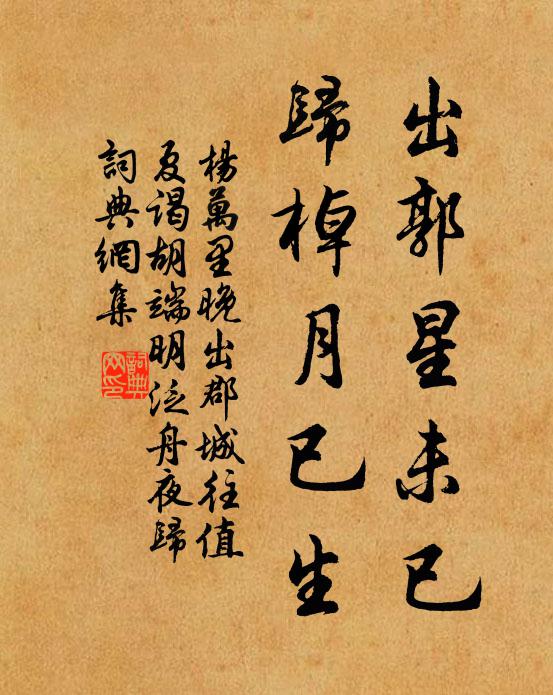 出郭星未已
歸棹月已生
楊萬里晚出郡城往值
夏谒胡端明泛舟夜歸
詞典網集
詞典網印